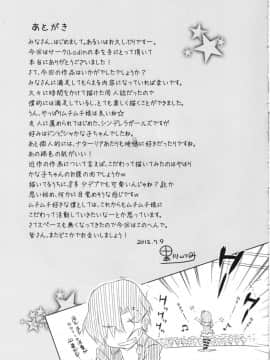 あとがき
みなさん、はじめまして。あるいはお久しぶりです…
今回はサークルLodinの本を手にとって頂いて
本当にありがとうございます!
さて、今回の作品はいかがでしたでしょうか?
みなさんに満足してもらえる内容になっていれば良いです。
久々に時間をかけて描けた同人誌だったので
僕的には満足しているし、とても楽しく描くことができました。
うん、やっぱりムチムチ様は良いね☆
友人に薦められてはじめた、シンデレラガールズですが
好みはドンピシャかな子ちゃんでしたね。
あと個人的には、ナターリアあたりも
好きだったりですね。
あの褐色の肌がいい!
近作の作品について言えば、こだわって描いてみたのはやはり
かな子ちゃんのお腹の肉でしょうかw
描いてるうちに
デブでも可愛いんじゃね?とか
思い始め、何かに目覚めそうでしたよw
ムチムチ好きな僕としては、これからもムチムチ様に
こだわって活動していきたいな~とか思っています。
さてスペースも無くなってきたので、今回はこのへんで。
皆さん、またどこかでお会いしましょう!
2012.7.9